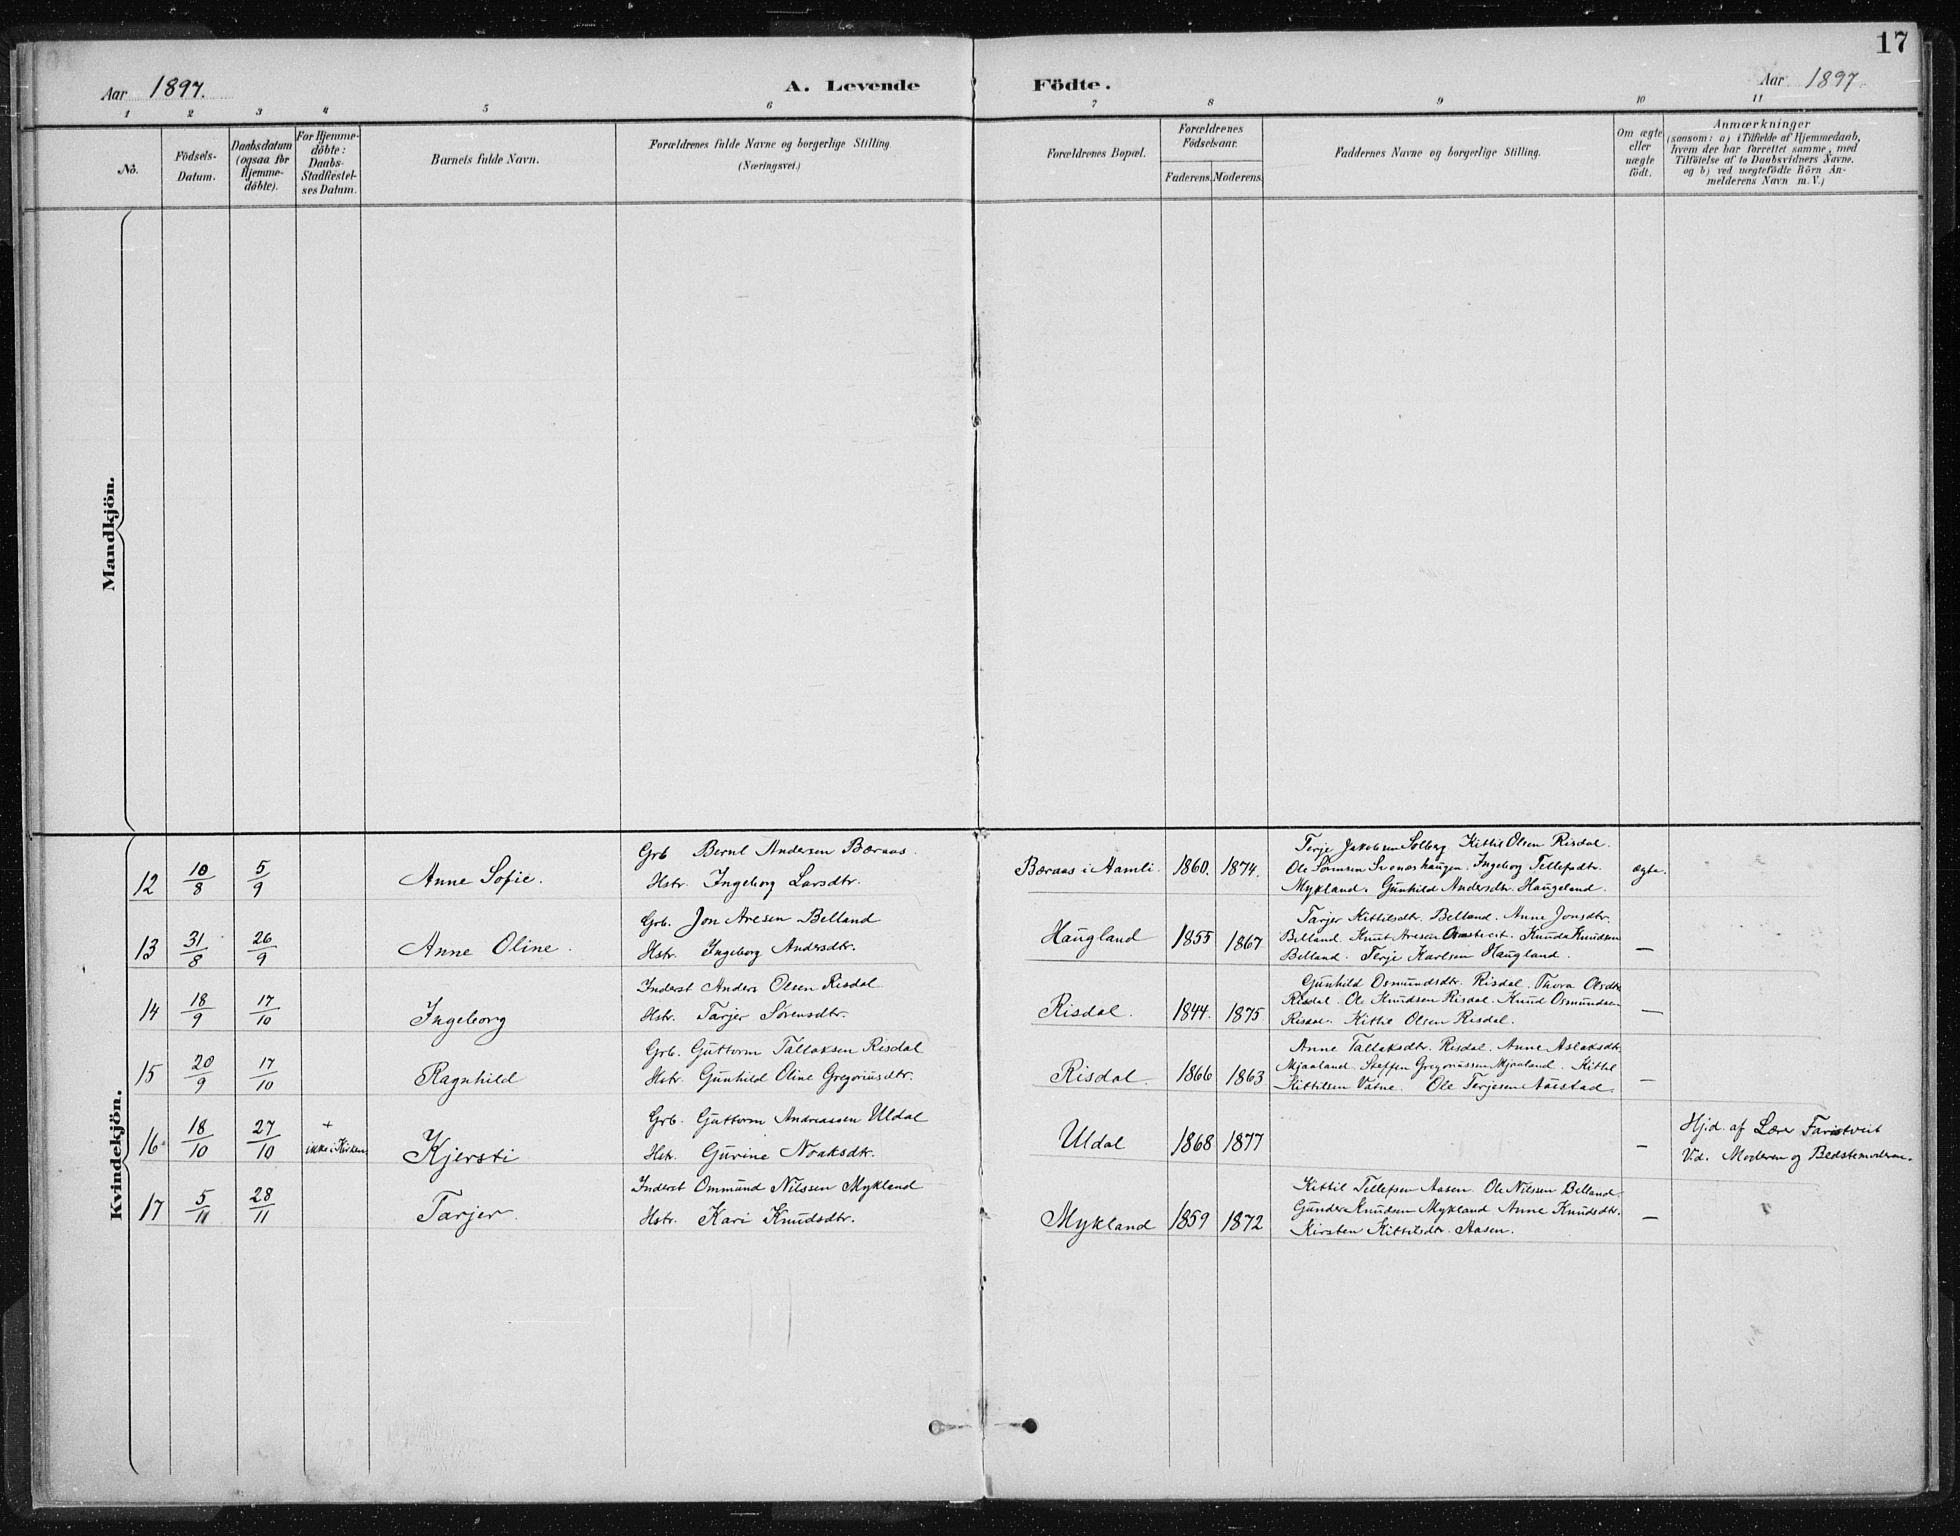 17
Aar 1897.
A. Levende Födte.
Aar 1897.
1 2 3 4 5 6 7 8 9 10 11
No.
Födsels-
Datum.
Daabsdatum
(ogsaa for
Hjemme-
döbte).
For Hjemme-
döbte:
Daabs-
Stadfæstel-
ses Datum.
Barnets fulde Navn.
Forældrenes fulde Navne og borgerlige Stilling
(Næringsvei.)
Forældrenes Bopæl.
Forældrenes
Födselsaar.
Faderens. Moderens.
Faddernes Navne og borgerlige Stilling.
Om ægte
eller
uægte
födt.
Anmærkninger
(saasom: a) i Tilfælde af Hjemmedaab,
hvem der har forrettet samme, med
Tilföielse af to Daabsvidners Navne.
og b) ved uægtefödte Börn An-
melderens Navn m. V.)
Mandkjön.
Kvindekjön.
12 10/8 5/9 Anne Sofie.
Grb Bernt Andersen Bæraas.
Hstr. Ingeborg Larsdtr.
Bæraas i Aamli. 1860. 1874.
Terje Jakobsen Solberg Kittil Olsen Risdal.
Ole Sörensen Svenashaugen. Ingeborg Tellefsdtr.
Mykland. Gunhild Andersdtr. Haugeland.
ægte.
13 31/8 26/9 Anne Oline.
Grb. Jon Aresen Belland
Hstr. Ingeborg Andersdtr.
Haugland 1855 1867
Tarjer Kittilsdtr. Belland. Anne Jonsdtr.
Belland. Knut Aresen Knuda Knudsen
Belland. Terje Karlsen Haugland.
—
14 18/9 17/10 Ingeborg
Inderst Anders Olsen Risdal
Hstr. Tarjer Sörensdtr.
Risdal. 1844. 1875
Gunhild Osmundsdtr. Risdal. Thora Olsdtr.
Risdal. Ole Knudsen Risdal. Knud Osmundsen
Risdal. Kittil Olsen Risdal.
—
15 20/9 17/10 Ragnhild
Grb. Guttorm Tallaksen Risdal
Hstr. Gunhild Oline Gregoriusdtr.
Risdal. 1866 1863
Anne Tallaksdtr. Risdal. Anne Aslaksdtr.
Mjaaland. Steffen Gregoriussen Mjaaland. Kittil
Kittilsen Vatne. Ole Terjesen Austad
—
16 18/10 27/10 + ikke i Kirken Kjersti
Grb. Guttorm Andreassen Uldal
Hstr. Gurine Noaksdtr.
Uldal 1868 1877
—
Hjd. af Lærer Faristveit
Vid. Moderen og Bedstemoderen.
17 5/11 28/11 Tarjer.
Inderst Ommund Nilssen Mykland
Hstr. Kari Knudsdtr.
Mykland 1859 1872
Kittil Tellefsen Aasen. Ole Nilssen Belland.
Gunder Knudsen Mykland Anne Knudsdtr.
Kirsten Kittilsdtr. Aasen.
—